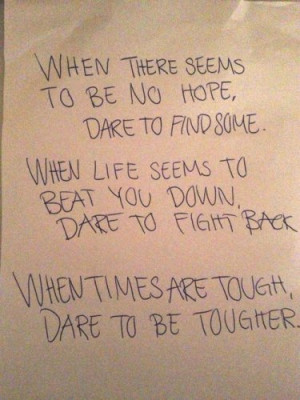 WHEN THERE SEEMS
TO BE NO HOPE,
DARE TO FIND SOME.
WHEN LIFE SEEMS TO
BEAT YOU DOWN,
DARE TO FIGHT BACK
WHEN TIMES ARE TOUGH,
DARE TO BE TOUGHER.